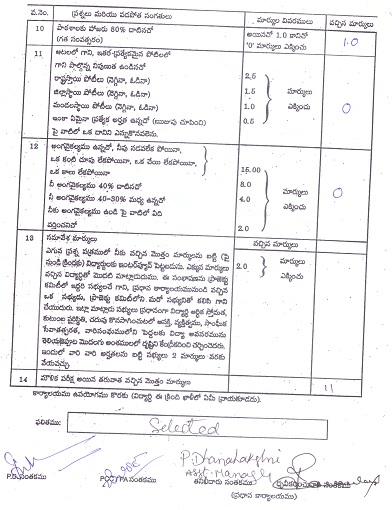 వ.నెం. ప్రశ్నలు మరియు వడపోత సంగతులు మార్కుల వివరములు వచ్చిన మార్కులు
10 పాఠశాలకు హాజరు 80% దాటినదో అయినచో 1.0 కానిచో 1.0
(గత సంవత్సరం) '0' మార్కులు ఎక్కించు
11 ఆటలలో గాని, ఇతర ప్రత్యేకమైన పోటీలలో
గాని పాల్గొన్న నిపుణత ఉండినదో
రాష్ట్రస్థాయి పోటీలు (నెగ్గినా, ఓడినా) 2.5
జిల్లాస్థాయి పోటీలు (నెగ్గినా, ఓడినా) 1.5 మార్కులు
మండలస్థాయి పోటీలు (నెగ్గినా, ఓడినా) 1.0 ఎక్కించు 0
ఇంకా ఏమైనా ప్రత్యేక అర్హత ఉన్నచో (ఋజువు చూపించి) 0.5
పై వాటిలో ఒక దానిని ఎన్నుకొనవలెను.
12 అంగవైకల్యము ఉన్నదో, నీవు నడవలేక పోయినా,
ఒక కంటి చూపు లేకపోయినా, ఒక చేయి లేకపోయినా,
ఒక కాలు లేకపోయినా 15.00
నీ అంగవైకల్యము 40% దాటినదో 8.0 మార్కులు 0
నీ అంగవైకల్యము 40-30% మధ్య ఉన్నదో 4.0 ఎక్కించు
నీకు అంగవైకల్యము ఉండి పై వాటిలో ఏది
వర్తించనిచో 2.0
13 సమావేశ మార్కులు వచ్చిన మార్కులు
ఎగువ ప్రశ్న పత్రములో నీకు వచ్చిన మొత్తం మార్కులను బట్టి (పై
నుండి క్రిందకు) విద్యార్థులకు ఇంటర్వ్యూకి పెట్టబడును. ఎక్కువ మార్కులు 2.0 మార్కులు
వచ్చిన విద్యార్థితో మొదటి మాట్లాడుదుము. ఈ సంభాషణను ప్రాజెక్టు ఎక్కించు
కమిటీలో ఇద్దరి సభ్యులచే గాని, ప్రధాన కార్యాలయమునుండి వచ్చిన
ఒక సభ్యుడు, ప్రాజెక్టు కమిటీలోని మరో సభ్యునితో కలిసి గాని
చేయుదురు. ఇట్లా మాట్లాడు సభ్యులు ప్రధానంగా విద్యార్థి ఆర్థిక స్తోమత,
కుటుంబ పరిస్థితి, చదువు కొనసాగించుటలో ఆసక్తి, వ్యక్తిత్వము, సాంఘిక
సేవాతత్పరత, వారిసంఘములోని పెద్దలకు విద్యా అవసరమును
తెలియజెప్పుట మొదలగు అంశములలో దృష్టిని కేంద్రీకరించి చర్చించెదరు.
ఇందులో వారి వారి అర్హతలను బట్టి సభ్యులు 2 మార్కులు వరకు
వేయవచ్చు.
14 మౌలిక పరీక్ష అయిన తరువాత వచ్చిన మొత్తం మార్కులు 11
కార్యాలయము ఉపయోగము కొరకు (విద్యార్థి ఈ క్రింది ఖాళీలో ఏమీ వ్రాయకూడదు).
ఫలితము: Selected
P.Dhanalakshmi
Asst. Manager
సంతకము సంతకము తనిఖీదారు సంతకము ధృవీకరించువారి సంతకము
(ప్రధాన కార్యాలయము)